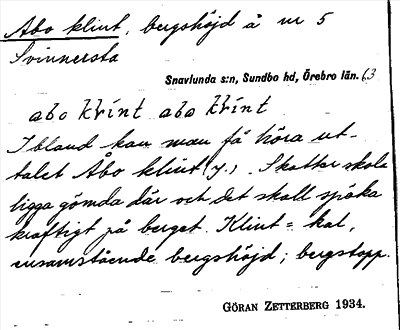 Abo klint, bergshöjd å nr 5
Svinnersta
Snavlunda s:n, Sundbo hd, Örebro län. 63
abo klint abo klint
Ibland kan man få höra ut-
talet Åbo klint (y.). Skatter skola
ligga gömda där och det skall spöka
kraftigt på berget. Klint = kal,
ensamstående bergshöjd; bergstopp.
GÖRAN ZETTERBERG 1934.